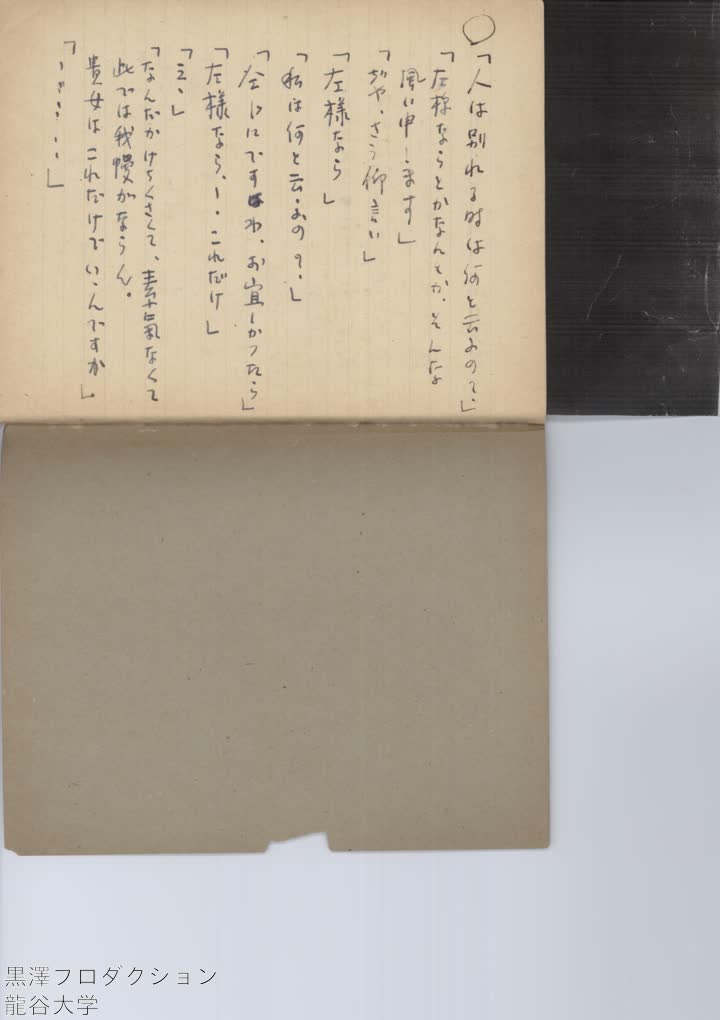 「人は別れる時は何と云ふの？」
「左様ならとかなんとか、そんな
風に申します」
「ぢや、さう仰言い」
「左様なら」
「私は何と云ふの？」
「同じにですわ、お宜しかつたら」
「左様なら、——これだけ」
「えゝ」
「なんだかけちくさくて、素気なくて
此では我慢がならん。
貴女はこれだけでいゝんですか」
黒澤プロダクション
龍谷大学